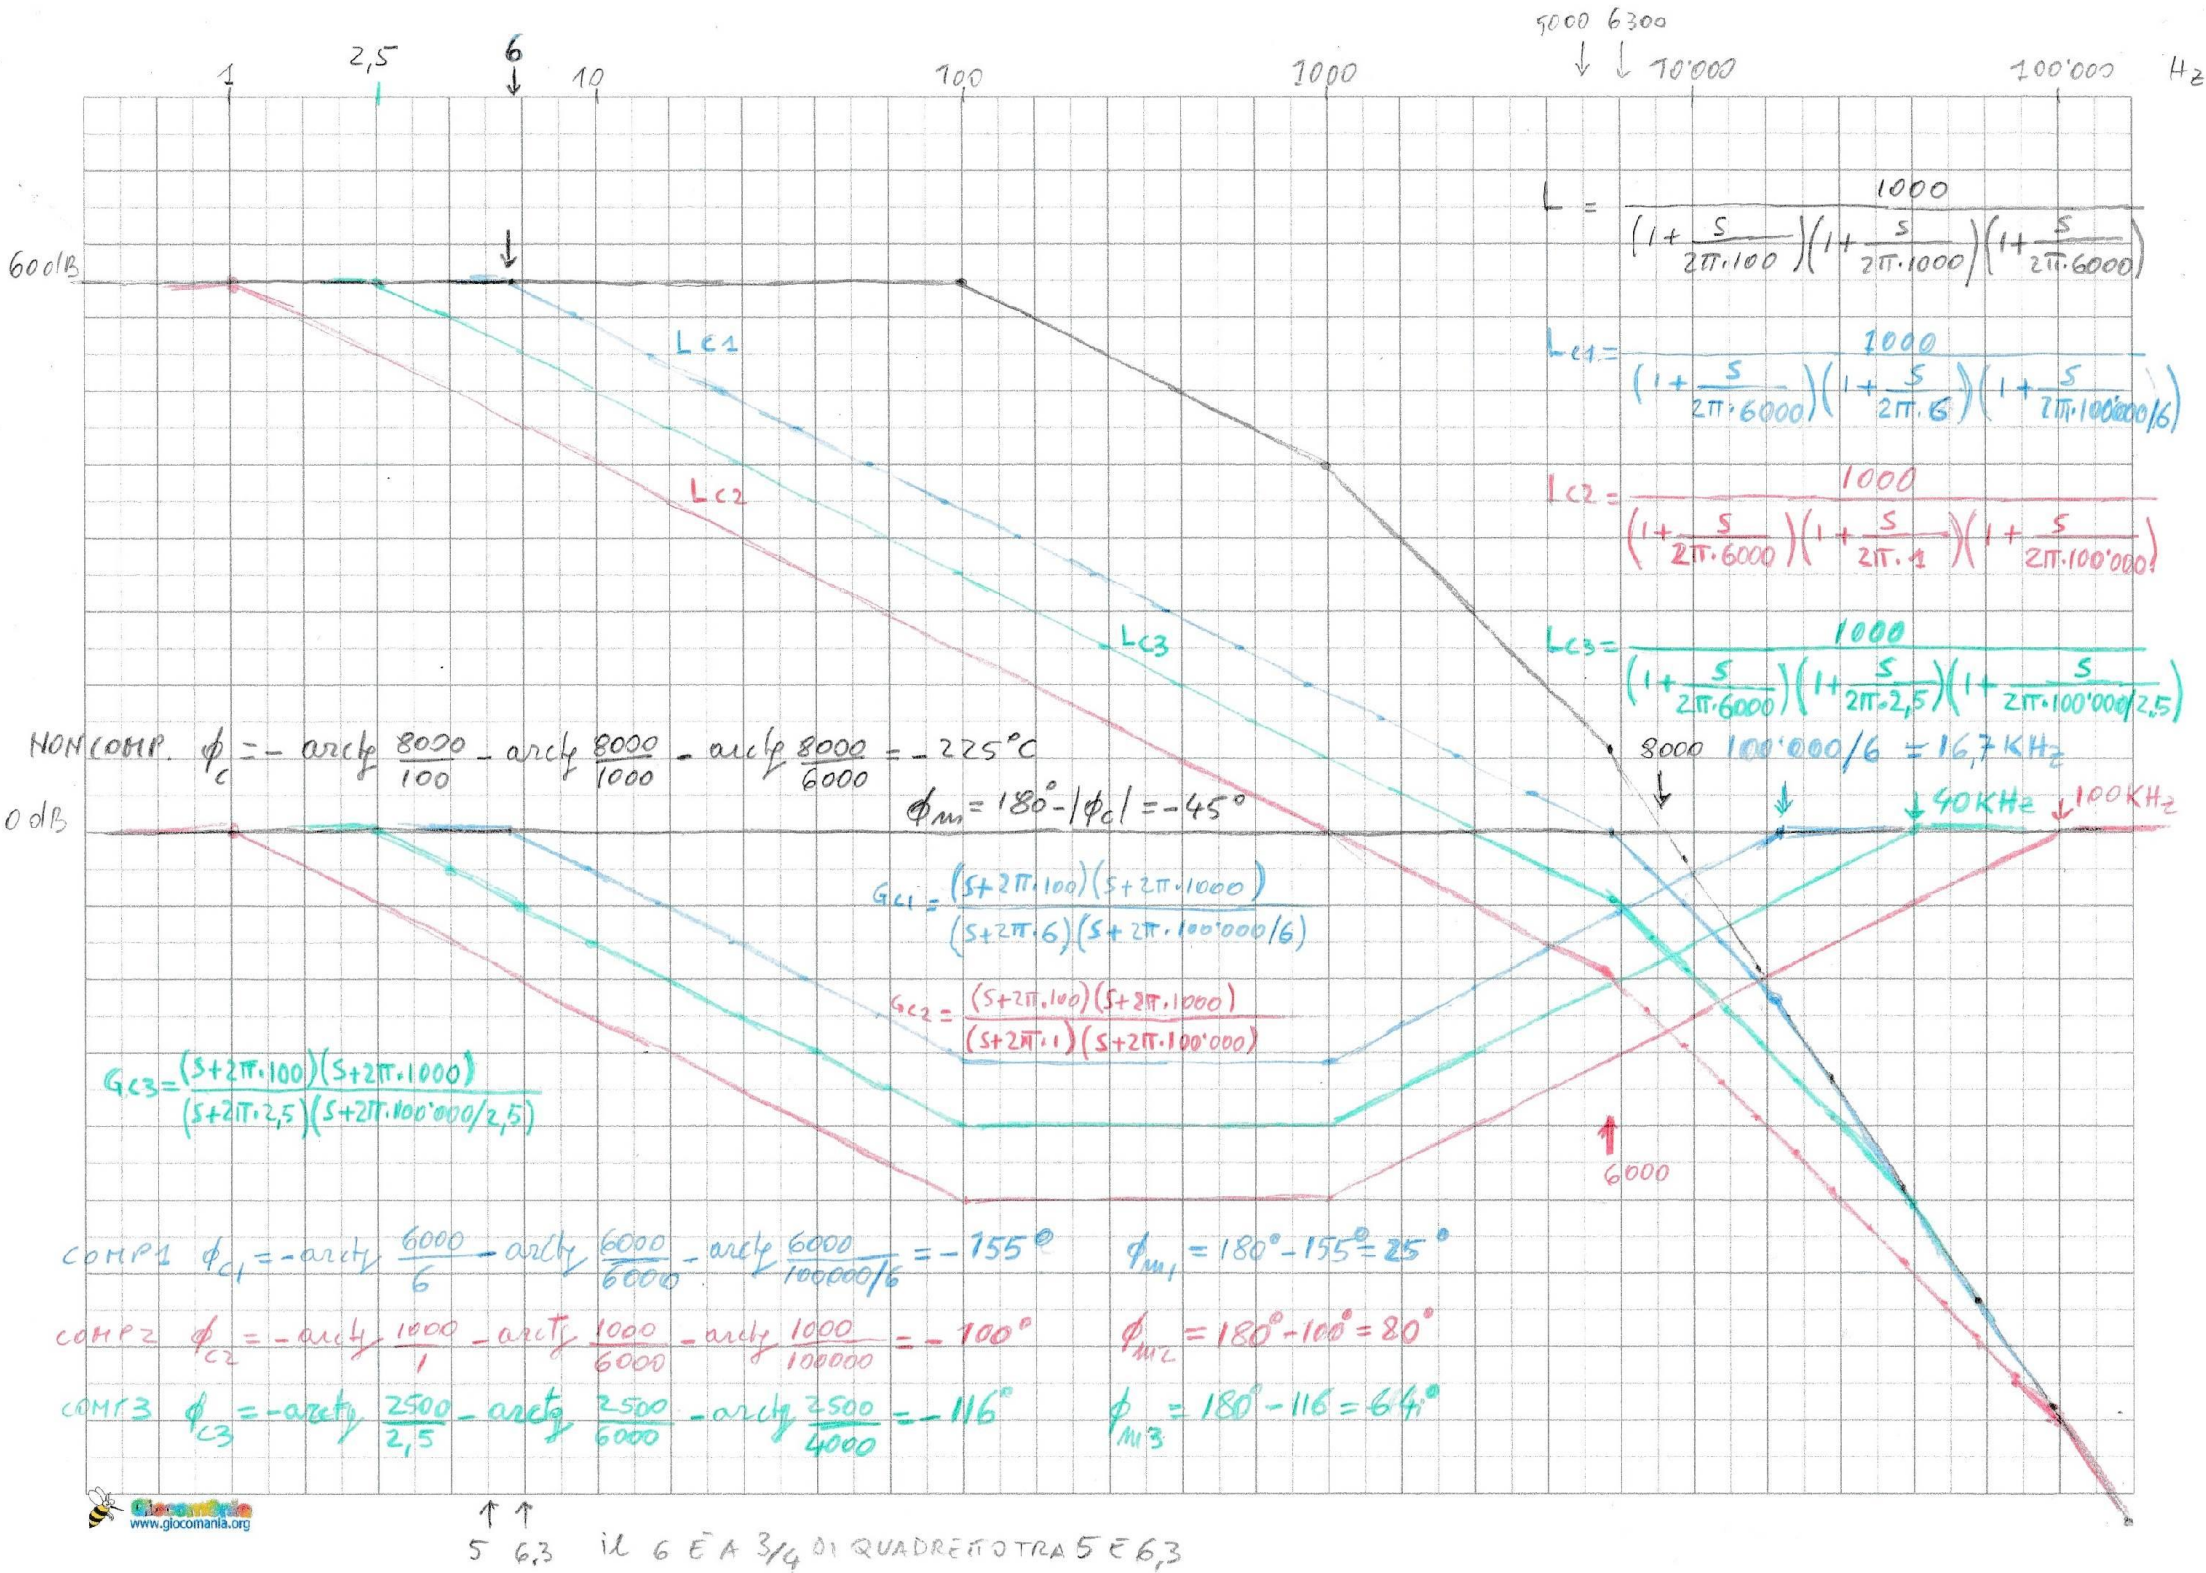 5000 6300
1 2,5 6 10 100 1000 10'000 100'000 Hz
60dB
0dB
L = 1000 / (1 + s/2π·100)(1 + s/2π·1000)(1 + s/2π·6000)
Lc1 = 1000 / (1 + s/2π·6000)(1 + s/2π·6)(1 + s/2π·100'000/6)
Lc2 = 1000 / (1 + s/2π·6000)(1 + s/2π·1)(1 + s/2π·100'000)
Lc3 = 1000 / (1 + s/2π·6000)(1 + s/2π·2,5)(1 + s/2π·100'000/2,5)
Lc1
Lc2
Lc3
NON COMP. ϕc = - arctg 8000/100 - arctg 8000/1000 - arctg 8000/6000 = - 225°C
ϕm = 180° - |ϕc| = -45°
8000 100'000/6 = 16,7 KHz
40KHz
100KHz
Gc1 = (s+2π·100)(s+2π·1000) / (s+2π·6)(s+2π·100'000/6)
Gc2 = (s+2π·100)(s+2π·1000) / (s+2π·1)(s+2π·100'000)
Gc3 = (s+2π·100)(s+2π·1000) / (s+2π·2,5)(s+2π·100'000/2,5)
6000
COMP1 ϕc1 = - arctg 6000/6 - arctg 6000/6000 - arctg 6000/100000/6 = - 155° ϕm1 = 180° - 155° = 25°
COMP2 ϕc2 = - arctg 1000/1 - arctg 1000/6000 - arctg 1000/100000 = - 100° ϕm2 = 180° - 100° = 80°
COMP3 ϕc3 = - arctg 2500/2,5 - arctg 2500/6000 - arctg 2500/4000 = - 116° ϕm3 = 180° - 116 = 64°
Giocomania
www.giocomania.org
5 6,3 il 6 È A 3/4 DI QUADRETTO TRA 5 E 6,3